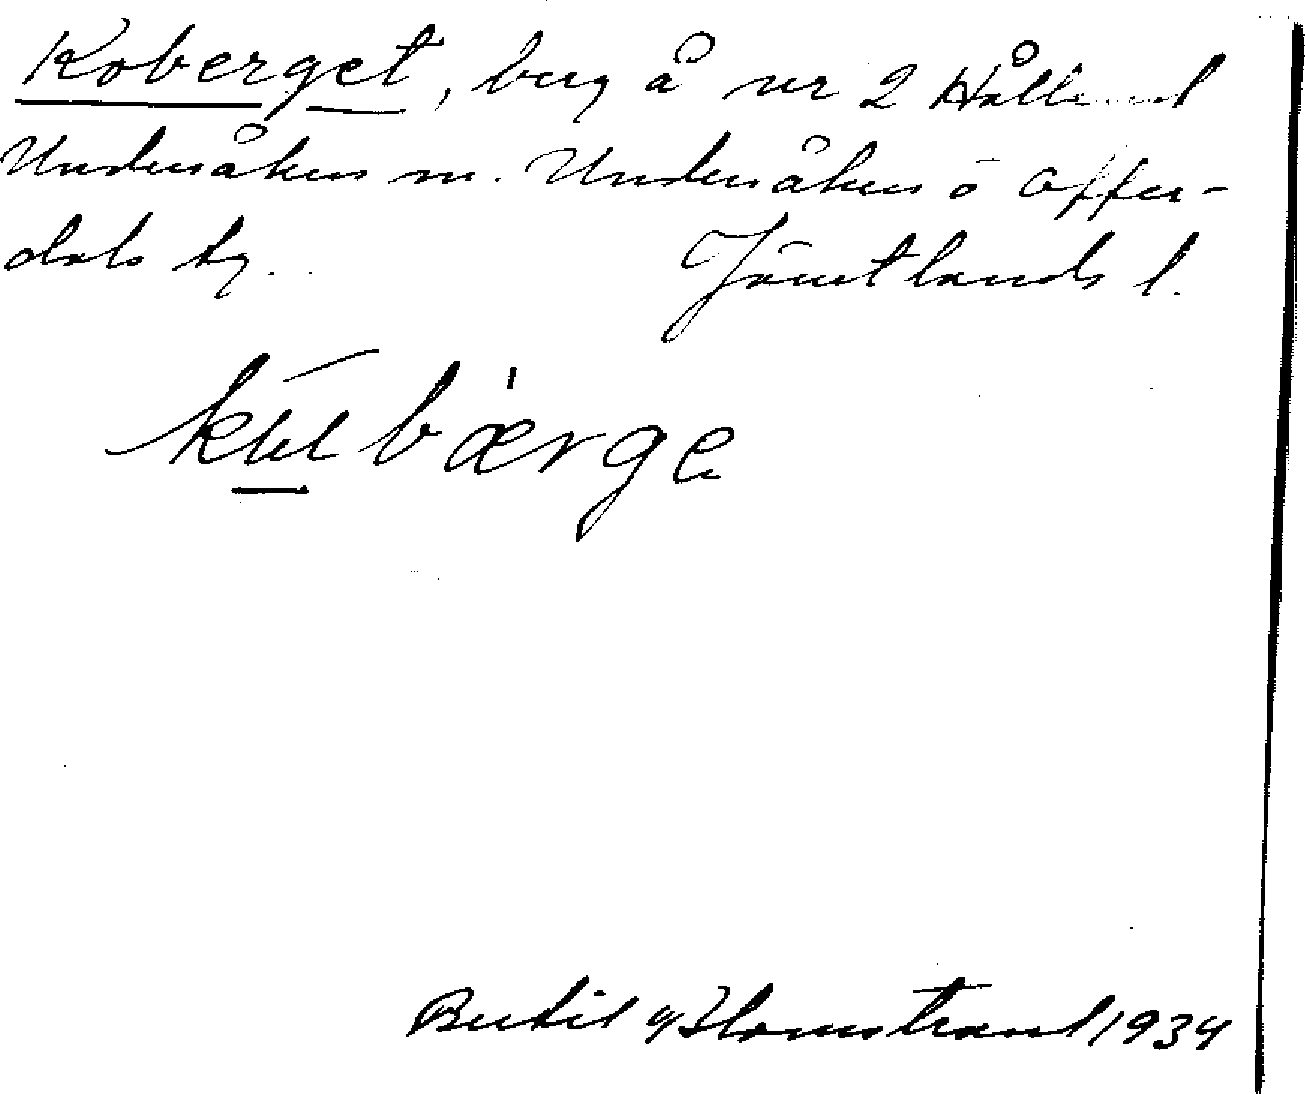 Koberget, berg å nr 2 Hålland
Undersåkers sn. Undersåkers o Offer-
dals tg. Jämtlands l.
bærge
Bertil Blomstrand 1934